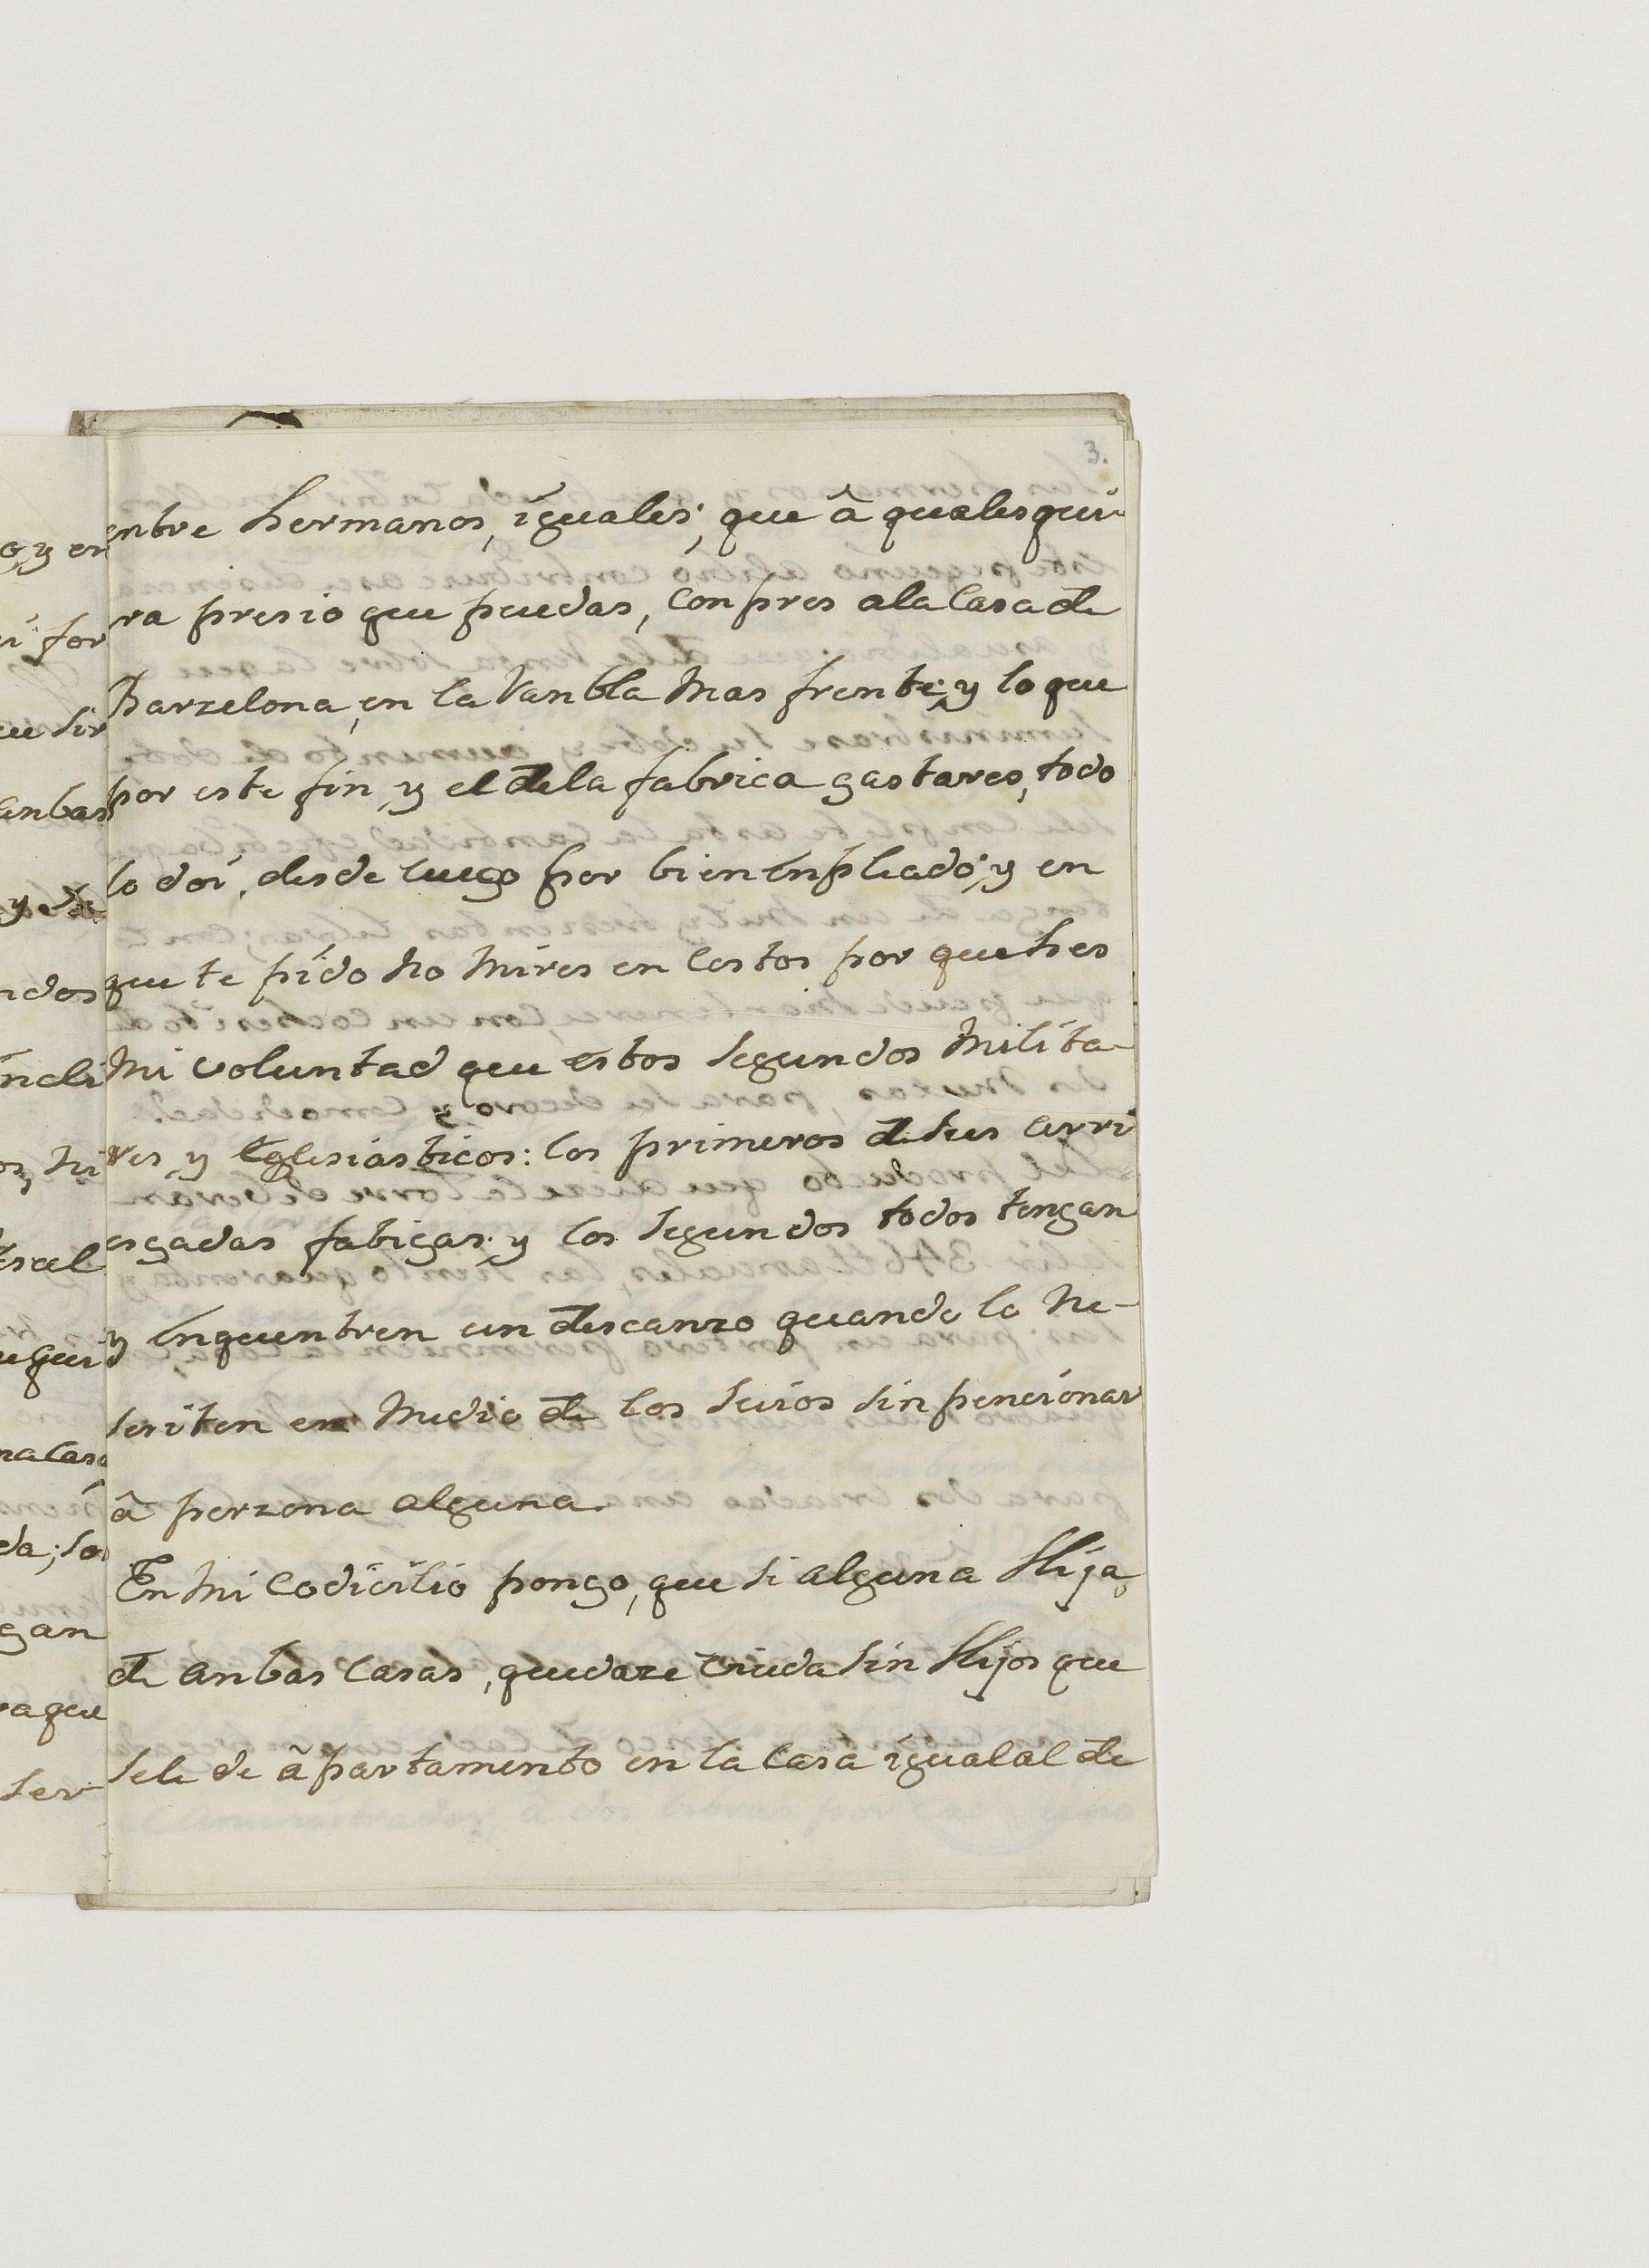 3.
entre hermanos, iguales; que â qualesqui-
ra presio que puedas, conpres ala Casa de
Barzelona, en la Ranbla mas frente; y lo que
por este fin y el dela fabrica gastares, todo
lo doi, desde luego por bien enpleado; y en
que te pido no mires en costos por que hes
mi voluntad que estos segundos milita-
res y Eglesiasticos: los primeros de sus arri
esgadas fatigas: y los segundos todos tengan
y enquentren un descanzo quando lo ne-
seriten en medio de los suios sin pencionar
â perzona alguna.
En mi Codicilio pongo, que si alguna Hija,
de anbas Casas, quedaze viuda sin Hijos que
sele de âpartamento en la Casa igual al de